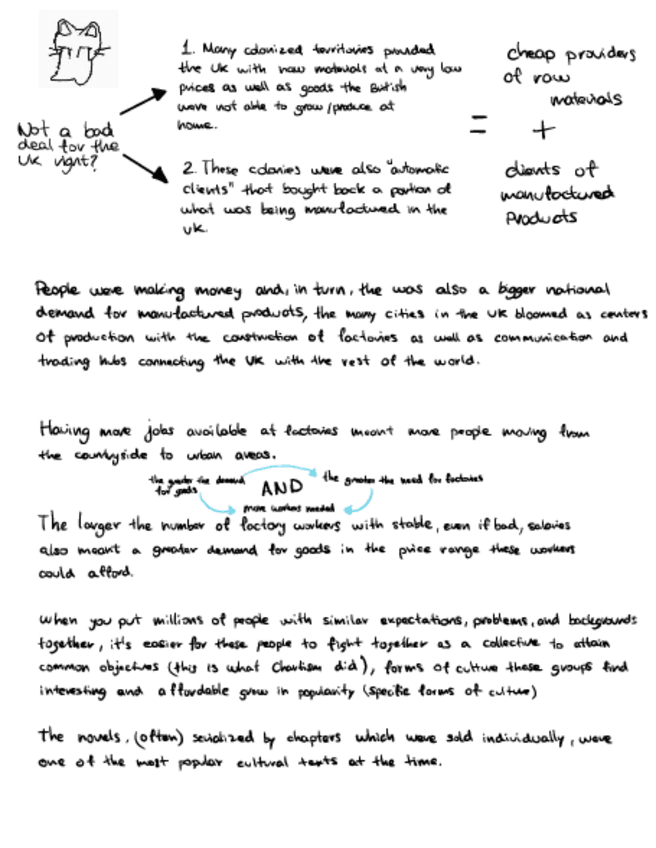 1. Many colonized territories provided
the UK with raw materials at a very low
prices as well as goods the British
were not able to grow/produce at
home.
Not a bad
deal for the
UK right?
2. These colonies were also "automatic
clients" that bought back a portion of
what was being manufactured in the
UK.
=
cheap providers
of row
materials
+
clients of
manufactured
Products
People were making money and, in turn, the was also a bigger national
demand for manufactured products, the many cities in the UK bloomed as centers
of production with the construction of factories as well as communication and
trading hubs connecting the UK with the rest of the world.
Having more jobs available at factories meant more people moving from
the countryside to urban areas.
the greater the demand
for goods
AND
the greater the need for factories
more workers needed
The larger the number of factory workers with stable, even if bad, salaries
also meant a greater demand for goods in the price range these workers
could afford.
When you put millions of people with similar expectations, problems, and backgrounds
together, it's easier for these people to fight together as a collective to attain
common objectives (this is what Chartism did), forms of culture these groups find
interesting and affordable grow in popularity (specific forms of culture)
The novels, (often) serialized by chapters which were sold individually, were
one of the most popular cultural texts at the time.